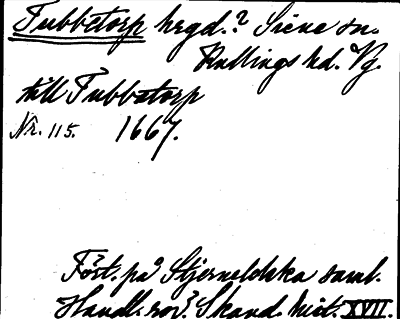 Tubbetorp hrgd.? Siene sn.
Kullings hd. Vg.
till Tubbetorp
Nr. 115. 1667.
Fört. på Stjerneldska saml.
Handl. ror? Skand. hist. XVII.